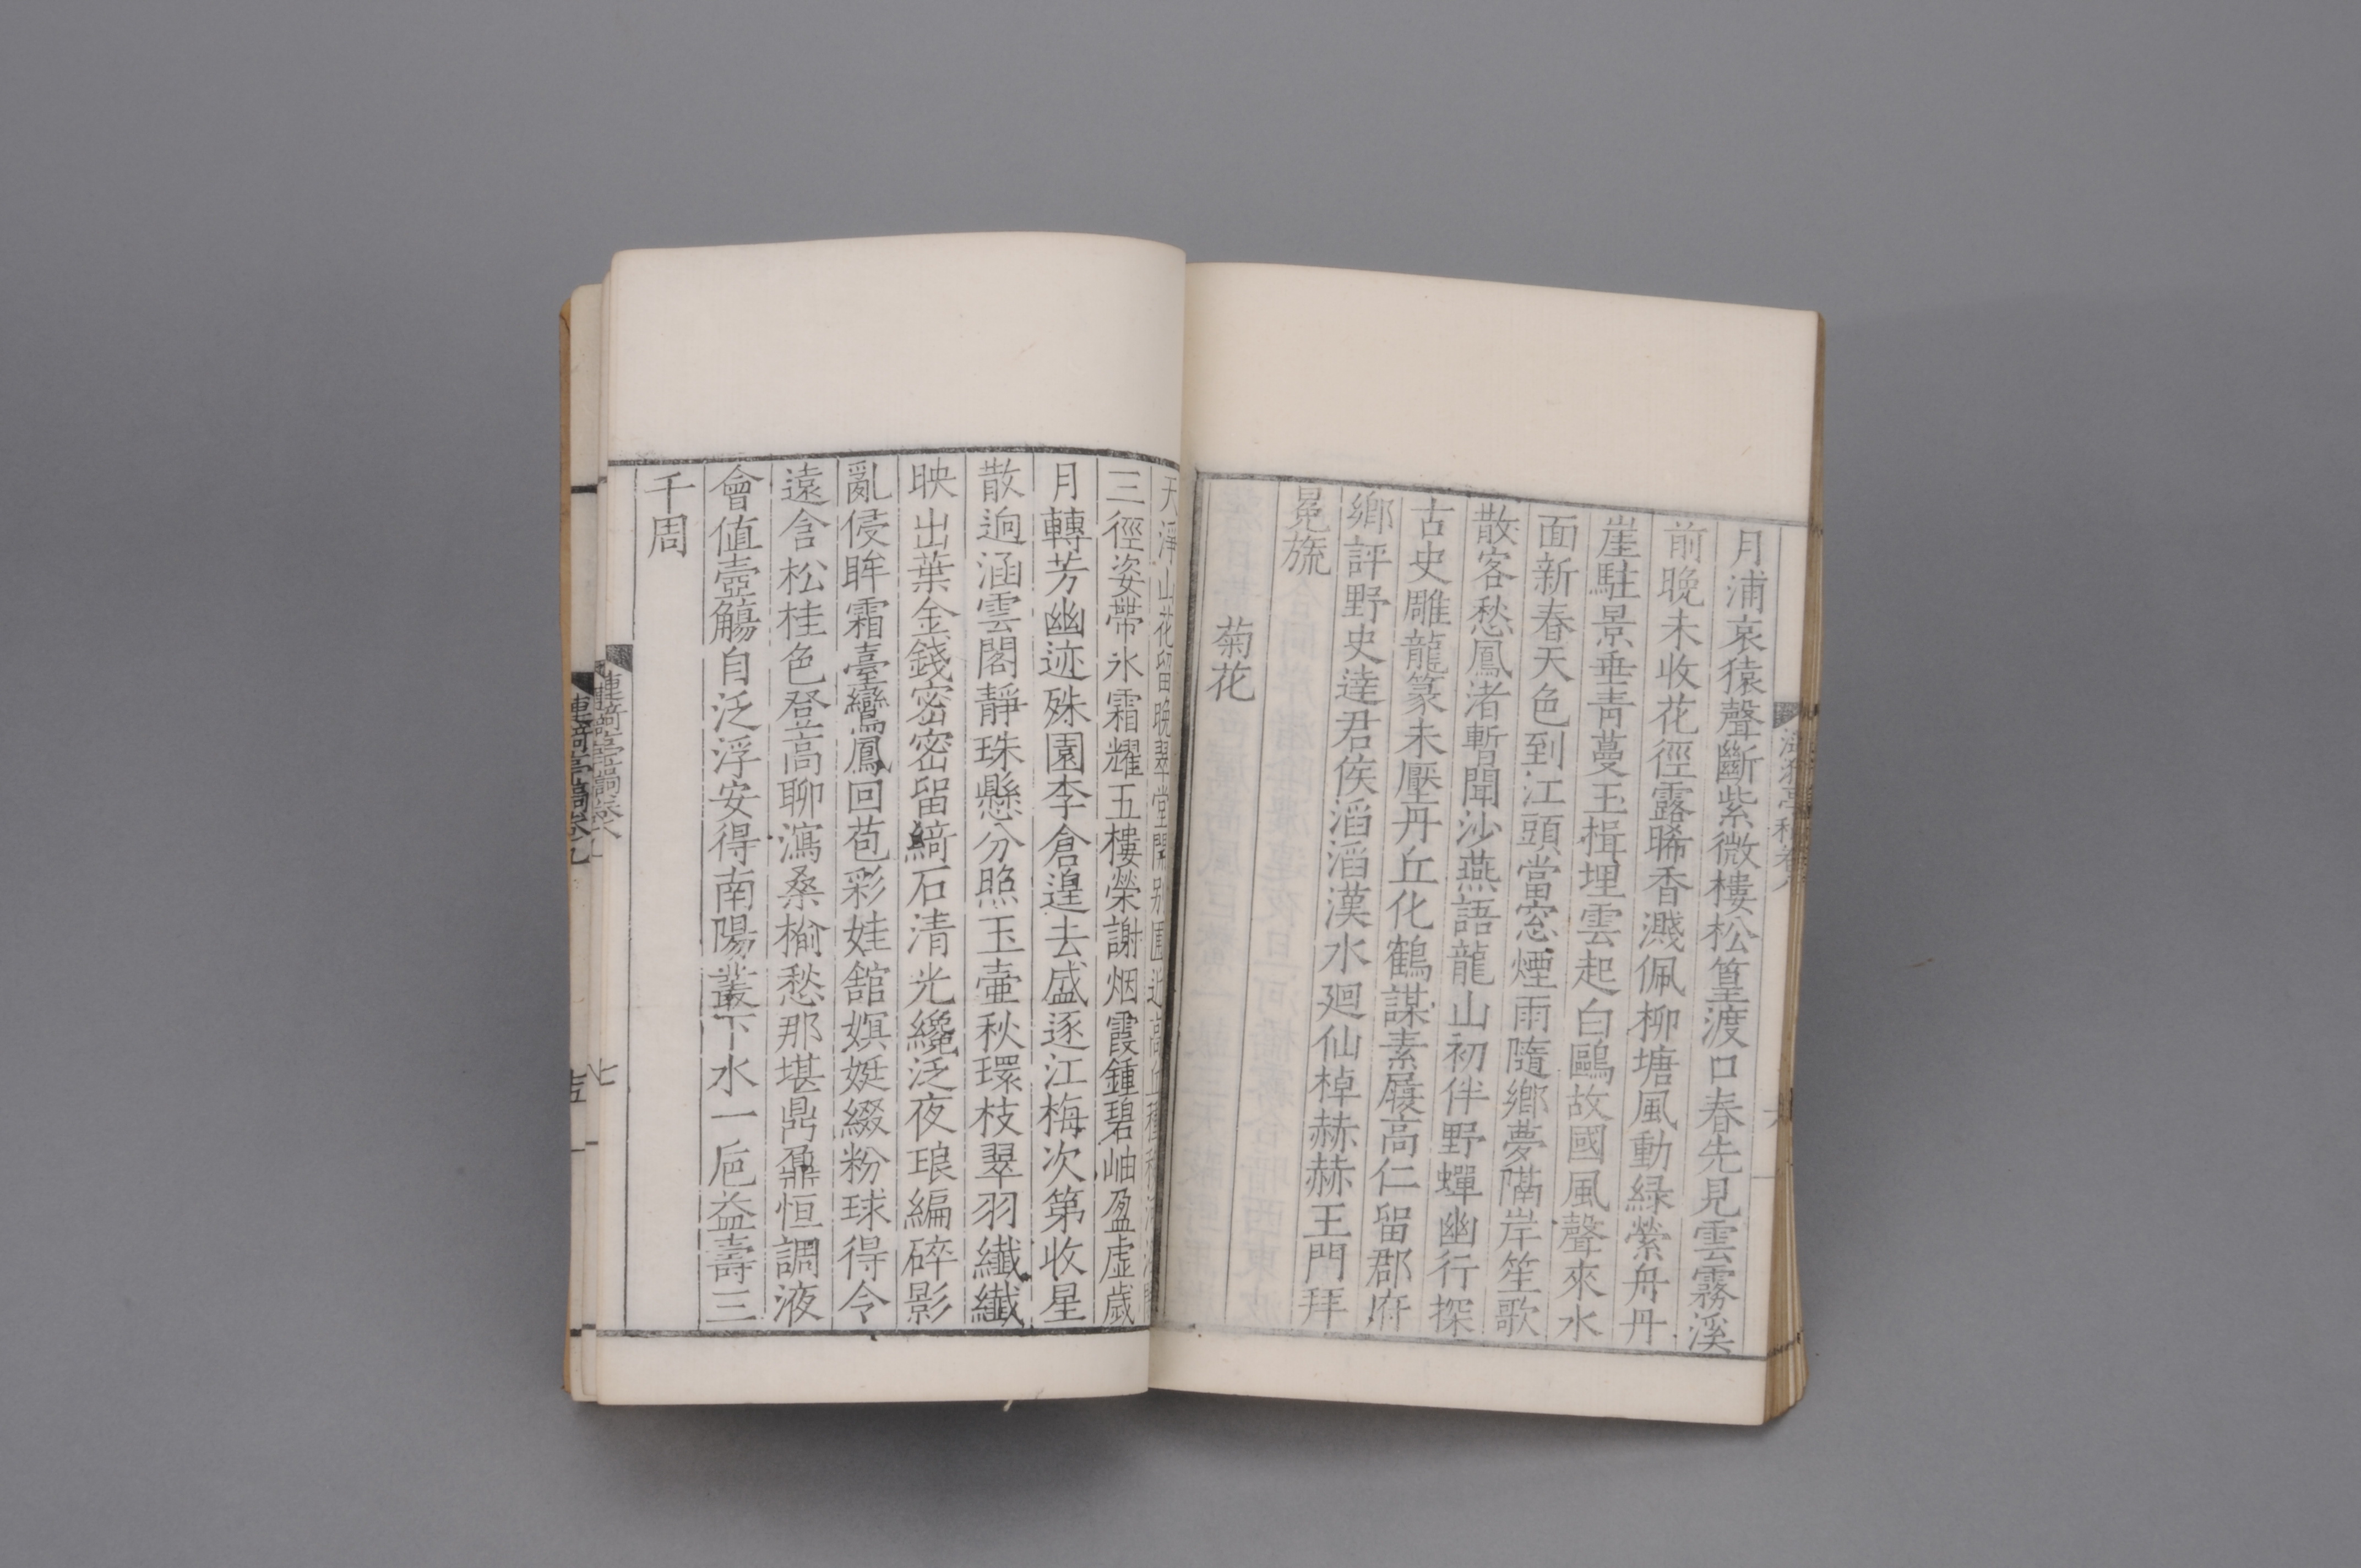 月浦哀猿聲斷紫微樓松篁渡口春先見雲霧溪
前晚未收花徑露晞香濺佩柳塘風動緑縈舟丹
崖駐景垂青蔓玉楫埋雲起白鷗故國風聲來水
面新春天色到江頭當窓煙雨隨鄉夢隔岸笙歌
散客愁鳳渚暫聞沙燕語龍山初伴野蟬幽行探
古史雕龍篆未壓丹丘化鶴謀素屐高仁留郡府
鄉評野史達君侯滔滔漢水廻仙棹赫赫王門拜
冕旒
菊花
天淨山花留晚翠堂開别圃近高丘種
三徑姿帶氷霜耀五樓榮謝烟霞鍾碧岫盈虛歲
月轉芳幽迹殊園李倉遑去盛逐江梅次第收星
散逈涵雲閣靜珠懸分照玉壷秋環枝翠羽纖纖
映出葉金錢密密留綺石清光纔泛夜琅編碎影
亂侵眸霜臺鸞鳳回苞彩娃舘娯娗綴粉球得令
遠含松桂色登高聊瀉桑榆愁那堪鼎鼐恒調液
會值壺觴自泛浮安得南陽叢下水一巵益壽三
千周
連綺亭稿卷八
七